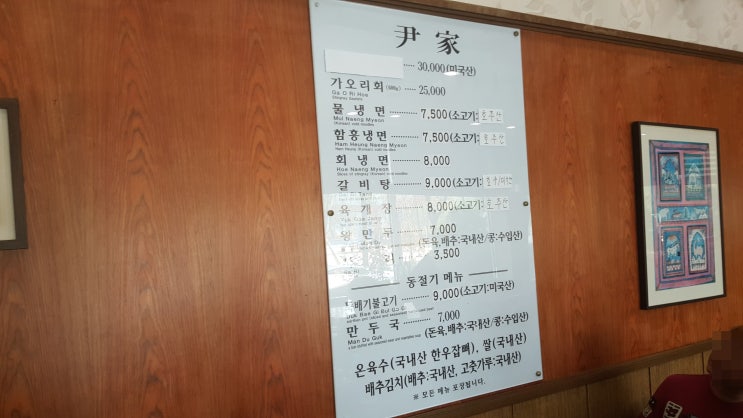 尹家
30,000(미국산)
가오리회(600g) 25,000
Ga O Ri Hoe
물냉면 7,500(소고기:호주산)
Mul Naeng Myeon
(Korean) cold noodles
함흥냉면 7,500(소고기:호주산)
Ham Heung Naeng Myeon
Ham heung (Korean) cold noodles
회냉면 8,000
Hoe Naeng Myeon
갈비탕 9,000(소고기:
육개장 8,000(소고기:호주산)
Yuk Gae Jang
왕만두 7,000
(돈육,배추:국내산/콩:수입산)
리 3,500
동절기 메뉴
뚝배기불고기 9,000(소고기:미국산)
Duk Bae Gi Bul Go Gi
만두국 7,000
Man Du Guk
(돈육,배추:국내산/콩:수입산)
온육수(국내산 한우잡뼈), 쌀(국내산)
배추김치(배추:국내산, 고춧가루:국내산)
※ 모든 메뉴 포장됩니다.